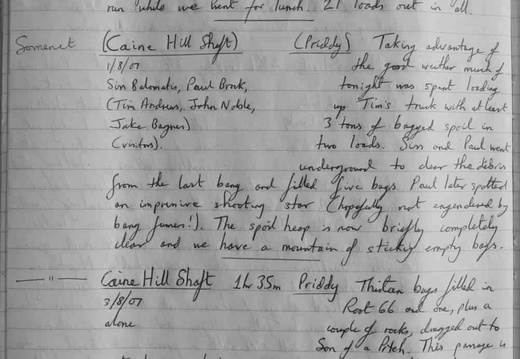 run while we went for lunch. 21 loads out in all.
Somerset (Caine Hill Shaft) (Priddy) Taking advantage of
1/8/07 the good weather much of
Sin Balomatis, Paul Brock, tonight was spent loading
(Tim Andrews, John Noble, up Tim's truck with at least
Jake Baynes) 3 tons of bagged spoil in
(visitors). two loads. Siss and Paul went
underground to clear the debris
from the last bang and filled five bags. Paul later spotted
an impressive shooting star (hopefully not engendered by
bang fumes!). The spoil heap is now briefly completely
clear and we have a mountain of stinky empty bags.
— " — Caine Hill Shaft 1h 35m Priddy Thirteen bags filled in
3/8/07 Root 66 and one, plus a
alone couple of rocks, dragged out to
Son of a Pitch. This passage is